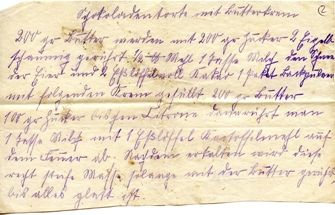 Schokoladentorte mit Butterkrem 2
200 gr Butter werden mit 200 gr Zucker 2 Eigelb
schaumig gerührt 1/2 ℔ Mehl 1 Tasse Milch den Schnee
der Eier und 2 Eßlöffel voll Kakao 1 Paket Backpulver
mit folgenden Krem gefüllt 200 gr Butter
100 gr Zucker darrührt man
1 Tasse Milch mit 1 Eßlöffel Kartoffelmehl auf
dem Feuer ab. Nachdem erkalten wird diese
recht steife Masse solange mit der Butter gerührt
bis alles glatt ist